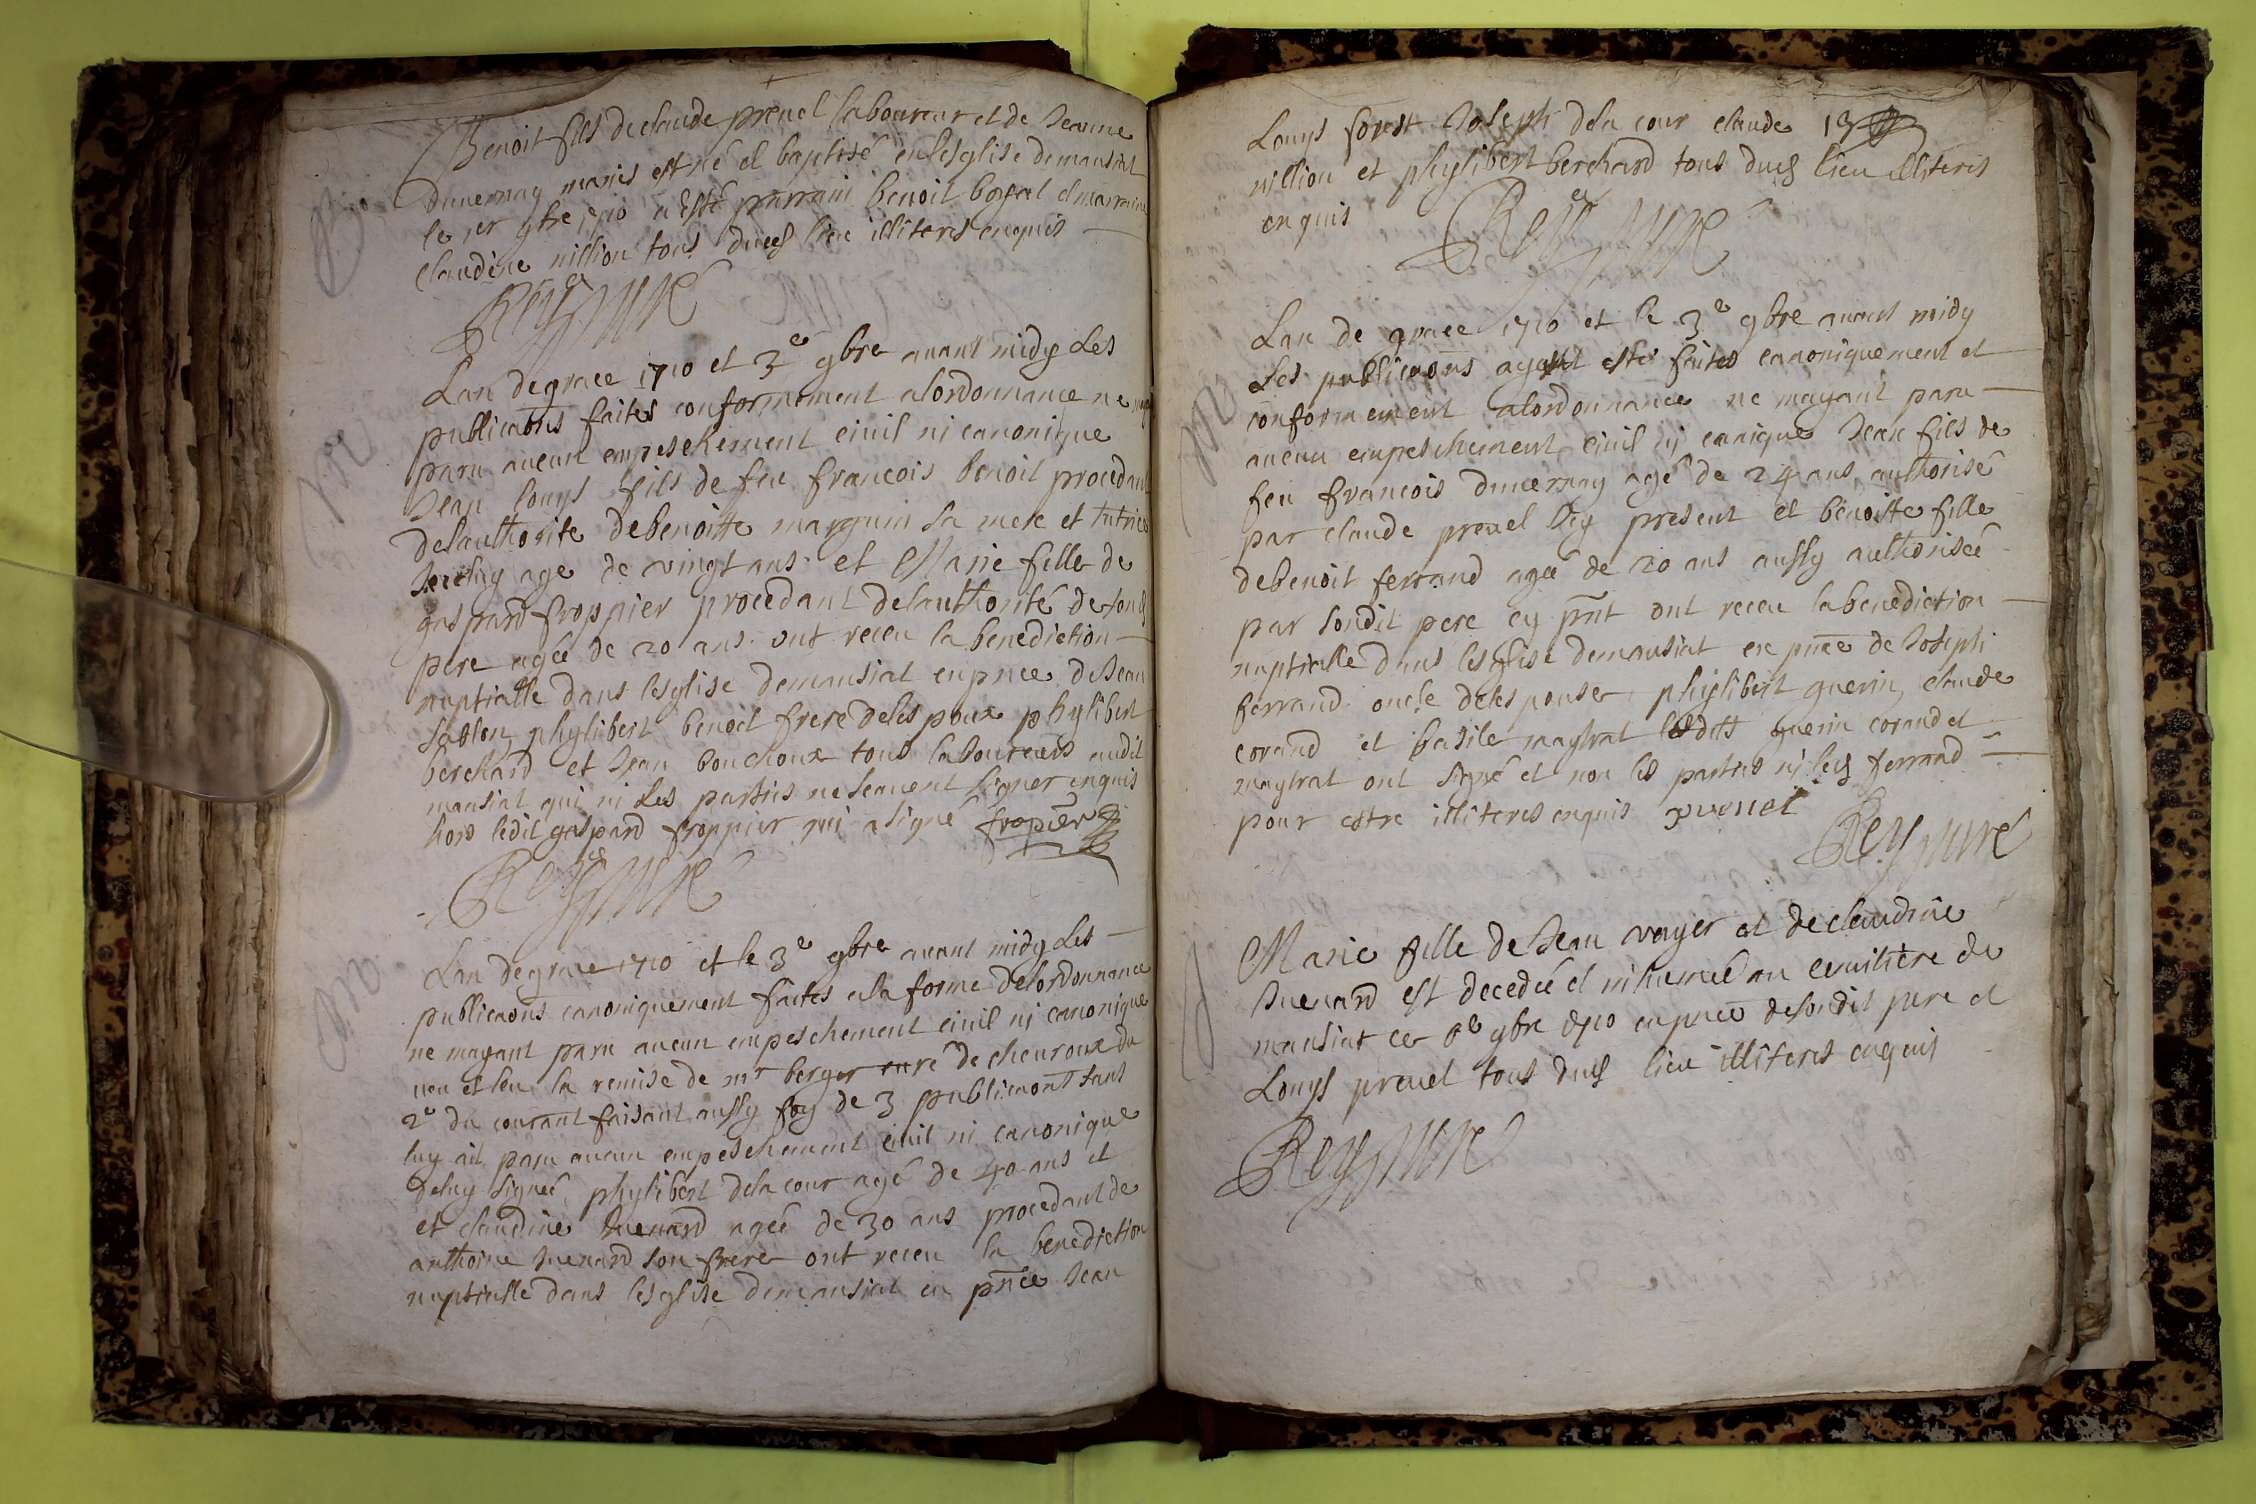 B
Benoit fils de claude preuel laboureur et de Jeanne
duuernay maries est né et baptisé en lesglise de mansiat
le 1er 9bre 1710 a esté parrain benoit boyat et marraine
claudine nillion tous dud lieu illiteres enquis
Rey curé
M
Lan de grace 1710 et 3e 9bre auant midy Les
publicaons faites conformement a lordonnance ne
paru aucun empeschement ciuil ni canonique
Jean louys fils de feu francois benoit procedant
de lauthorite de benoitte marguin sa mere et tutrice
agé de vingt ans et Marie fille de
gaspard froppier procedant de lauthorité de son d
pere agée de 20 ans ont receu la benediction
nuptialle dans lesglise de mansiat en pnce de Jean
sablon phylibert benoit frere de lespoux phylibert
berchard et Jean bouchoux tous laboureurs audit
mansiat qui ni Les parties ne scauent signer enquis
hors ledit gaspard froppier qui a signé fropier
Rey curé
M
Lan de grace 1710 et le 3e 9bre auant midy Les
publicaons canoniquement faites a la forme de lordonnance
ne mayant paru aucun empeschement ciuil ni canonique
ueu et leu la remise de mr berger curé de cheuroux du
2e du courant faisant aussy foy de 3 publicaons sans
luy ait paru aucun empeschement ciuil ni canonique
de luy signée phylibert dela cour agé de 40 ans et
et claudine Juenard agée de 30 ans procedant de
anthoine Juenard son frere ont receu la benediction
nuptialle dans lesglise de mansiat en pnce Jean
Louys forest Joseph dela cour claude 13
nillion et phylibert berchard tous dud lieu illiteres
enquis
Rey curé
M
Lan de grace 1710 et le 3e 9bre auant midy
Les publicaons ayant esté faites canoniquement et
conformement a lordonnance ne mayant paru
aucun empeschement ciuil ni canique Jean fils de
feu francois duuernay agé de 24 ans authorisé
par claude preuel icy present et benoitte fille
de benoit ferrand agée de 20 ans aussy authorisée
par sondit pere cy pnt ont receu la benediction
nuptialle dans lesglise de mansiat en pnce de Joseph
ferrand oncle de lespouse phylibert guerin claude
corand et basile maytrat lesdits guerin corand et
maytrat ont signé et non les parties ni led ferrand
pour estre illiteres enquis preuel
Rey curé
Marie fille de Jean voyer et de claudine
Juenard est decedée et inhumée au cemitiere de
mansiat ce 8e 9bre 1710 en pnce de sondit pere et
Louys preuel tous dud lieu illiteres enquis
Rey curé